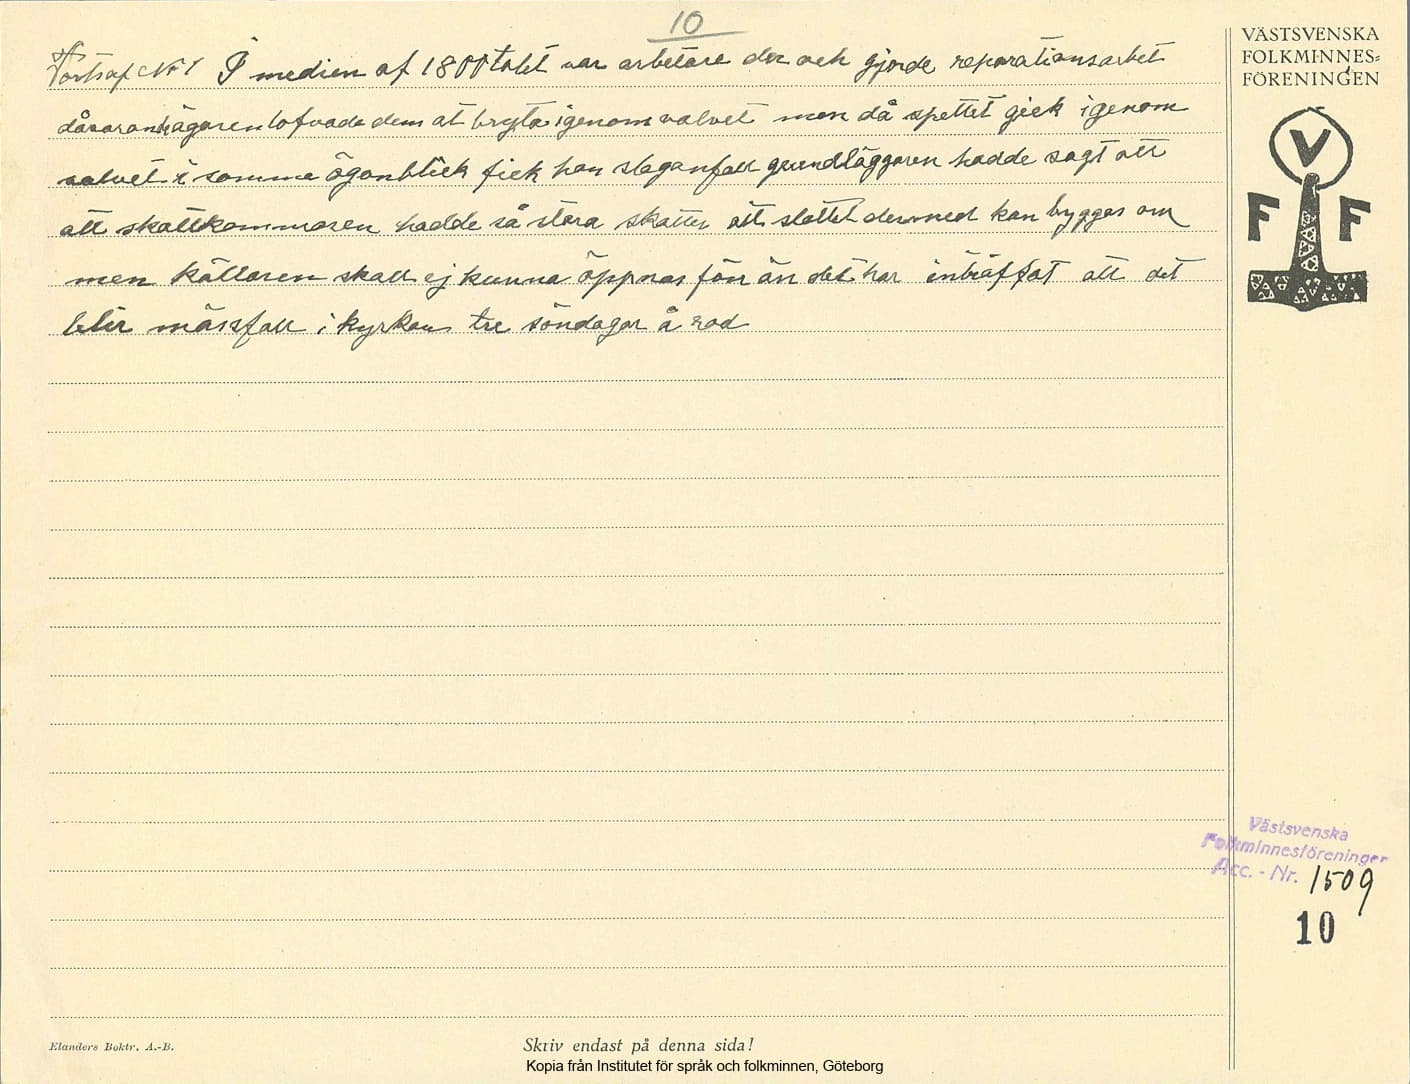 10
Forts af No 1 I medien af 1800 talet var arbetare der och gjorde reparationsarbet
dåvarandeägaren lofvade dem at bryta igenom valvet men då spettet gick igenom
valvet i samma ögonblick fick han slaganfall grundläggaren hadde sagt att
att skattkammaren hadde så stora skatter att slottet dermed kan bygges om
men källaren skall ej kunna öppnas förr än det har inträffat att det
blir mässfall i kyrkan tre söndagar å rad
VÄSTSVENSKA
FOLKMINNES-
FÖRENINGEN
V
F F
Västsvenska
Folkminnesföreningen
Acc. - Nr. 1509
10
Elanders Boktr. A.-B.
Skriv endast på denna sida!
Kopia från Institutet för språk och folkminnen, Göteborg